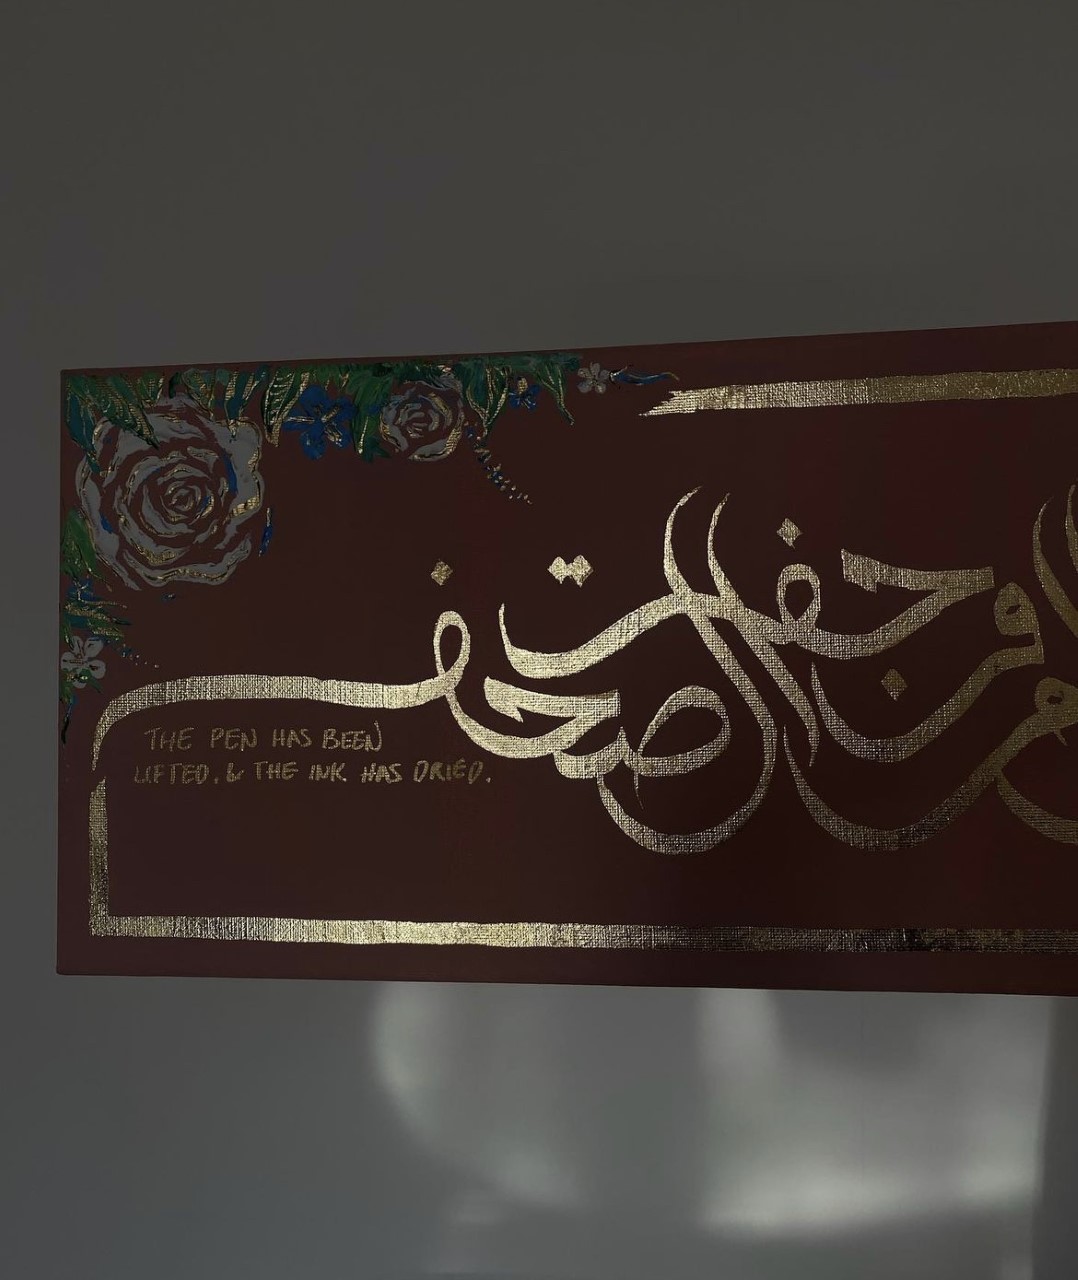 وجفت الصحف
THE PEN HAS BEEN
LIFTED, & THE INK HAS DRIED.